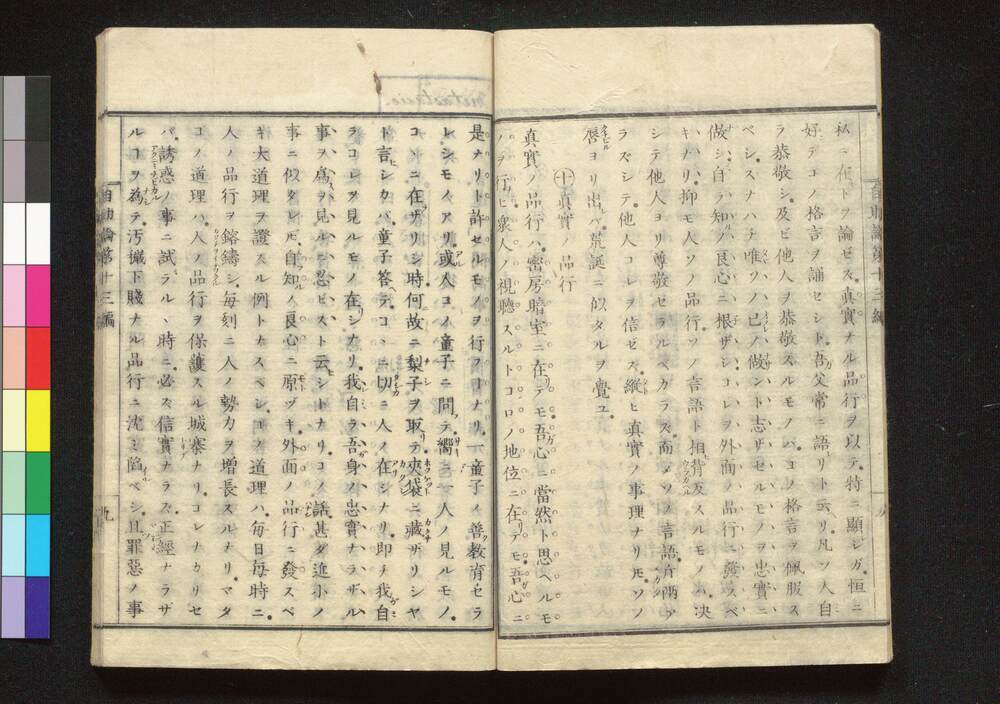 私ニ在トヲ論ゼズ。真實ナル品行ヲ以テ。特ニ顯レガ。恒ニ
好デコノ格言ヲ誦セシト。吾父常ニ語リト云リ。凡ソ人自
ラ恭敬シ。及ビ他人ヲ恭敬スルモノハ。コノ格言ヲ佩服ス
ベシ。スナハチ唯ソノ己ノ做ント志ザセルモノヲ忠實ニ
做シ。自ラ知ノ良心ニ根ザシ。コレヲ外面ノ品行ニ發スベ
キナリ。抑モ人ソノ品行ソノ言語ト相背反スルモノハ。决
シテ他人ヨリ尊敬セラルベカラズ。而メソノ言語斤兩ア
ラズシテ。他人コレヲ信ゼズ。縱ヒ真實ノ事理ナリトモ。ソノ
唇ヨリ出レバ。荒誕ニ似タルヲ覺ユ。
十 真實ノ品行
真實ノ品行ハ。密房暗室ニ在テモ。吾心ニ當然ト思ヘルモ
ノヲ行ヒ。衆人ノ視聽スルトコロノ地位ニ在テモ。吾心ニ
是ナリト許セルモノヲ行フコナリ。一童子ノ善教育セラ
レシモノアリ。或人コノ童子ニ問テ。嚮ニ一人ノ見ルモノ。
コヽニ在ザリシ時。何故ニ梨子ヲ取テ。夾袋ニ藏ザリシヤ
ト言シカバ。童子答テ。コヽニ一切ニ人ノ在シナリ。即チ我自
ラコレヲ見ルモノ在シナリ。我自ラ吾身ノ忠實ナラザル
事ヲ為ヲ見ルニ忍ビズト云シトナリ。コノ話甚ダ進小ノ
事ニ似タレ𪜈。自知ノ良心ニ原ヅキ。外面ノ品行ニ發スベ
キ大道理ヲ證スル例トナスベシ。コノ道理ハ。毎日毎時ニ。
人ノ品行ヲ鎔鑄シ。毎刻ニ人ノ勢力ヲ增長スルナリ。マタ
コノ道理ハ。人ノ品行ヲ保護スル城寨ナリ。コレナカリセ
バ。誘惑ノ事ニ試ラルヽ時ニ。必ズ信實ナラズ。正經ナラザ
ルコヲ為テ。汚穢下賤ナル品行ニ沈ミ陷ベシ。且罪惡ノ事
自助論第十三編
九